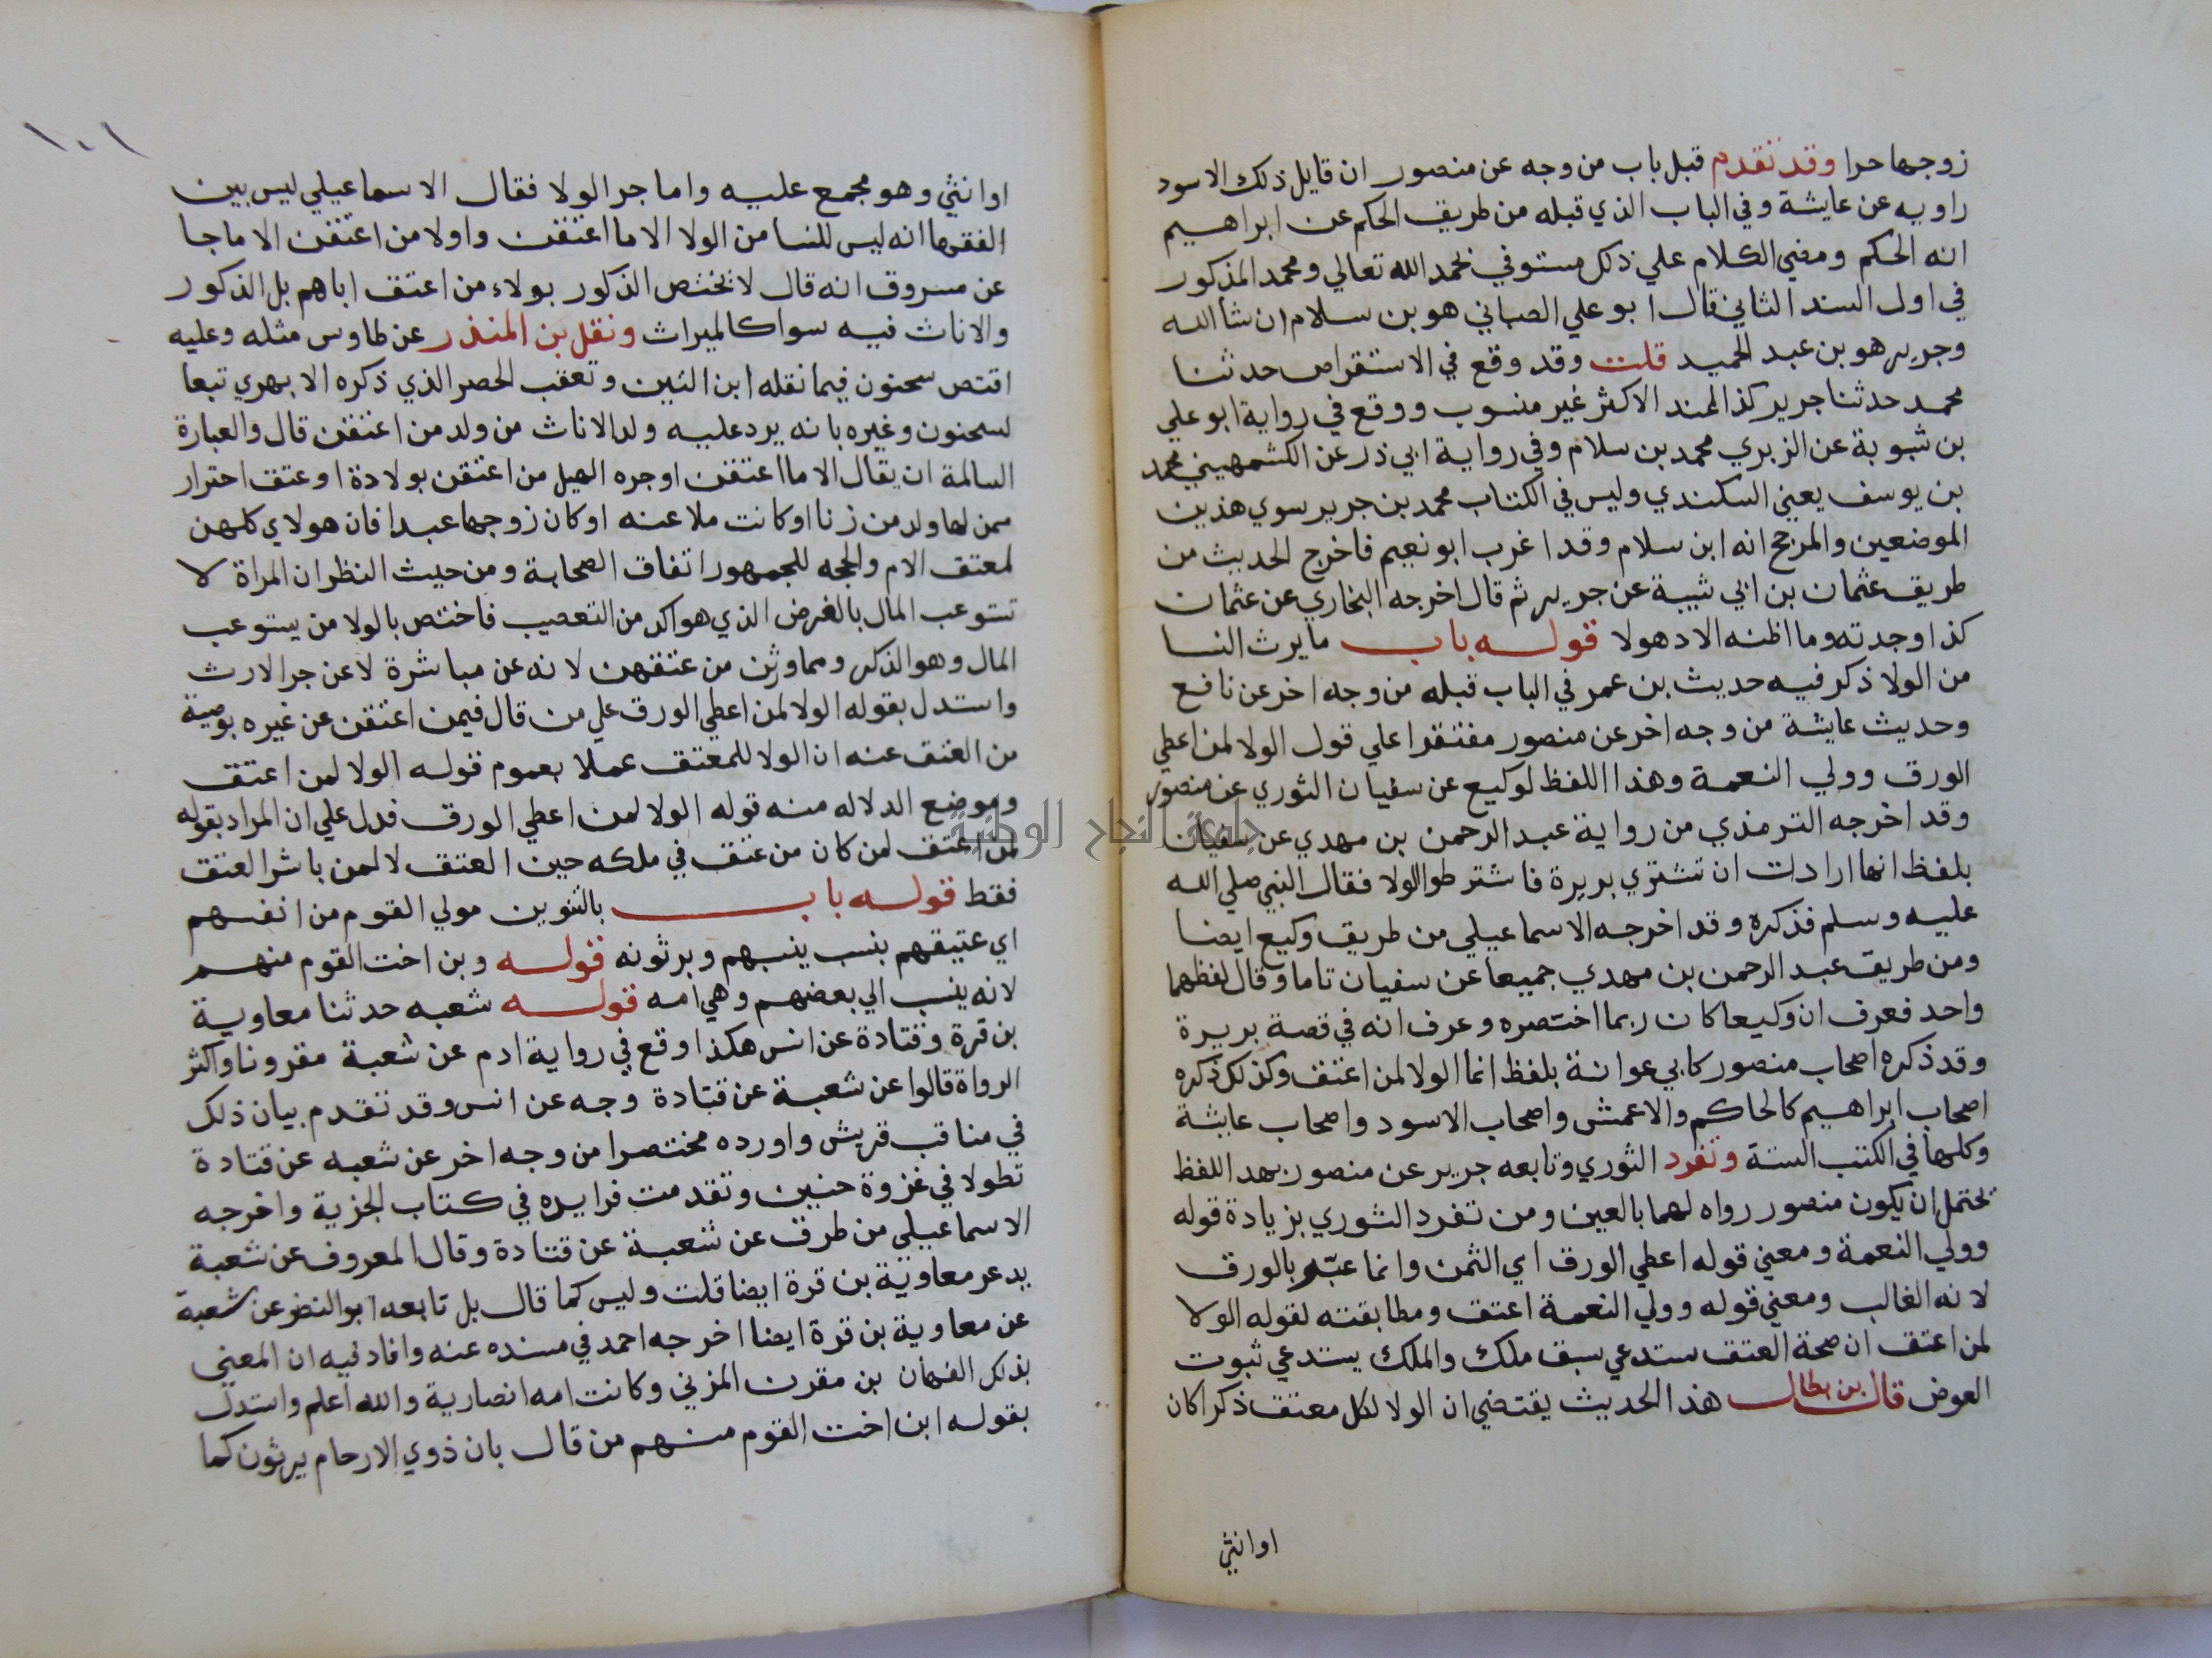 زوجها حرا وقد تقدم قبل باب من وجه عن منصور ان قايل ذلك الاسود
راويه عن عايشة وفي الباب الذي قبله من طريق الحكم عن ابراهيم
انه الحكم ومضي الكلام علي ذلك مستوفي بحمد الله تعالي ومحمد المذكور
في اول السند الثاني قال ابو علي الصباني هو بن سلام ان شا الله
وجرير هو بن عبد الحميد قلت وقد وقع في الاستقراص حدثنا
محمد حدثنا جرير كذا لمند الاكثر غير منسوب ووقع في رواية ابو علي
بن شبوبة عن الزبري محمد بن سلام وفي رواية ابي ذر عن الكشمهيني محمد
بن يوسف يعني السكندي وليس في الكتاب محمد بن جرير سوي هذين
الموضعين والمرجح انه ابن سلام وقد اغرب ابو نعيم فاخرج الحديث من
طريق عثمان بن ابي شيبة عن جرير ثم قال اخرجه البخاري عن عثمان
كذا وجدته وما اظنه الا دهولا قوله باب ما يرث النسا
من الولا ذكر فيه حديث بن عمر في الباب قبله من وجه اخر عن نافع
وحديث عايشة من وجه اخر عن منصور مفتقرا علي قول الولا لمن اعطي
الورق وولي النعمة وهذا اللفظ لوكيع عن سفيان الثوري عن منصور
وقد اخرجه الترمذي من رواية عبد الرحمن بن مهدي عن سفيان
بلفظ انها ارادت ان تشتري بريرة فاشترطوا الولا فقال النبي صلي الله
عليه وسلم فذكره وقد اخرجه الاسماعيلي من طريق وكيع ايضا
ومن طريق عبد الرحمن بن مهدي جميعا عن سفيان تاما وقال لفظهما
واحد فعرف ان وكيعا كان ربما اختصره وعرف انه في قصة بريرة
وقد ذكره اصحاب منصور كابي عوانة بلفظ انما الولا لمن اعتق وكذلك ذكره
اصحاب ابراهيم كالحاكم والاعمش واصحاب الاسود واصحاب عايشة
وكلها في الكتب الستة وتفرد الثوري وتابعه جرير عن منصور بهدا اللفظ
تحتمل ان يكون منصور رواه لهما بالعين ومن تفرد الثوري بزيادة قوله
وولي النعمة ومعني قوله اعطي الورق اي الثمن وانما عبّر بالورق
لانه الغالب ومعني قوله وولي النعمة اعتق ومطابقته لقوله الولا
لمن اعتق ان صحة العتق ستدعي سبق ملك والملك يستدعي ثبوت
العوض قال بن بطال هذا الحديث يقتضي ان الولا لكل معتق ذكرا كان
اوانثي
١٠١
اوانثي وهو مجمع عليه واما جر الولا فقال الاسماعيلي ليس بين
الفقها انه ليس للنسا من الولا الا ما اعتقن واولا من اعتقن الا ما جا
عن مسروق انه قال لا تختص الذكور بولاء من اعتق اباهم بل الذكور
والاناث فيه سوا كالميراث ونقل بن المنذر عن طاوس مثله وعليه
اقتص سحنون فيما نقله ابن التين وتعقب الحصر الذي ذكره الابهري تبعا
لسحنون وغيره بانه يرد عليه ولد الاناث من ولد من اعتقن قال والعبارة
السالمة ان يقال الا ما اعتقن اوجره اليهل من اعتقن بولادة او عتق احترار
ممن لها ولد من زنا اوكانت ملاعنه اوكان زوجها عبدا فان هولاي كلهن
لمعتق الام والحجه للجمهور اتفاق الصحابة ومن حيث النظر ان المراة لا
تستوعب المال بالفرض الذي هو اكد من التعصيب فاختص بالولا من يستوعب
المال وهو الذكر ومما ورثن من عتقهن لانه عن مباشرة لا عن جر الارث
واستدل بقوله الولا لمن اعطي الورق علي من قال فيمن اعتقن عن غيره بوصية
من العتق عنه ان الولا للمعتق عملا بعموم قوله الولا لمن اعتق
وموضع الدلاله منه قوله الولا لمن اعطي الورق فدل علي ان المراد بقوله
لمن اعتق لمن كان من عتق في ملكه حين العتق لا لمن باشر العتق
فقط قوله باب بالتنوين مولي القوم من انفسهم
اي عتيقهم بنسب ينسبهم ويرثونه قوله وبن اخت القوم منهم
لانه ينسب الي بعضهم وهي امه قوله شعبه حدثنا معاوية
بن قرة وقتادة عن انس هكذا وقع في رواية ادم عن شعبة مقرونا واكثر
الرواة قالوا عن شعبة عن قتادة وجه عن انس وقد تقدم بيان ذلك
في مناقب قريش واورده مختصرا من وجه اخر عن شعبه عن قتادة
تطولا في غزوة حنين وتقدمت فرايده في كتاب الجزية واخرجه
الاسماعيلي من طرق عن شعبة عن قتادة وقال المعروف عن شعبة
يدعر معاوية بن قرة ايضا قلت وليس كما قال بل تابعه ابو النضر عن شعبة
عن معاوية بن قرة ايضا اخرجه احمد في مسنده عنه وافاد فيه ان المعني
بذلك النعمان بن مقرن المزني وكانت امه انصارية والله اعلم واستدل
بقوله ابن اخت القوم منهم من قال بان ذوي الارحام يرثون كما
جامعة النجاح الوطنية